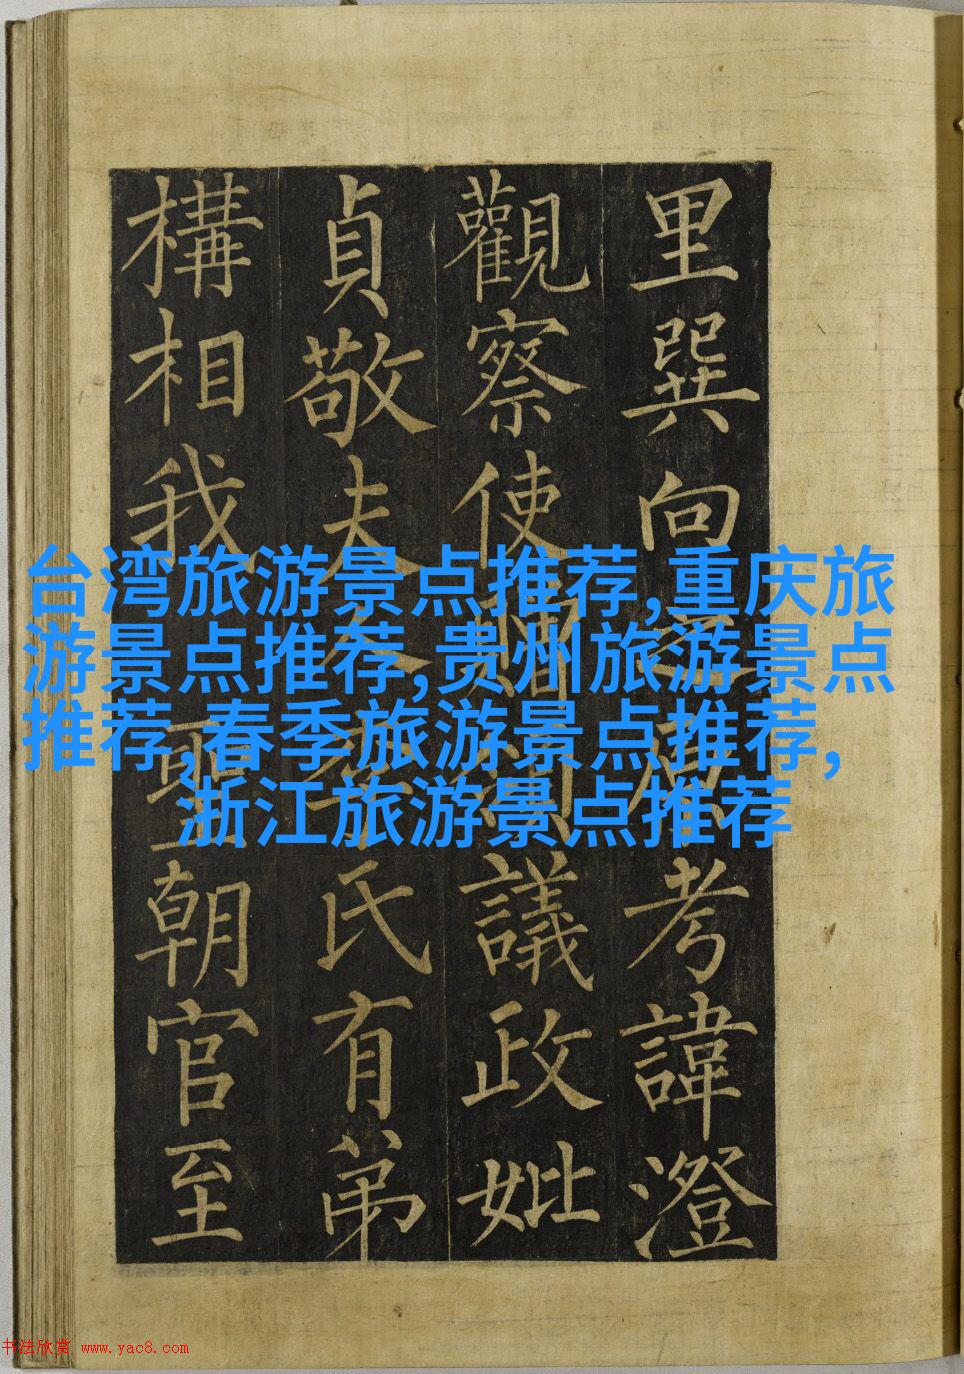 里巽向之原考諱澄
觀察使贈議政妣
貞敬夫人李氏有弟
構相我聖朝官至
台湾旅游景点推荐,重庆旅
游景点推荐,贵州旅游景点
推荐,春季旅游景点推荐,
浙江旅游景点推荐
书法欣赏 www.yac8.com